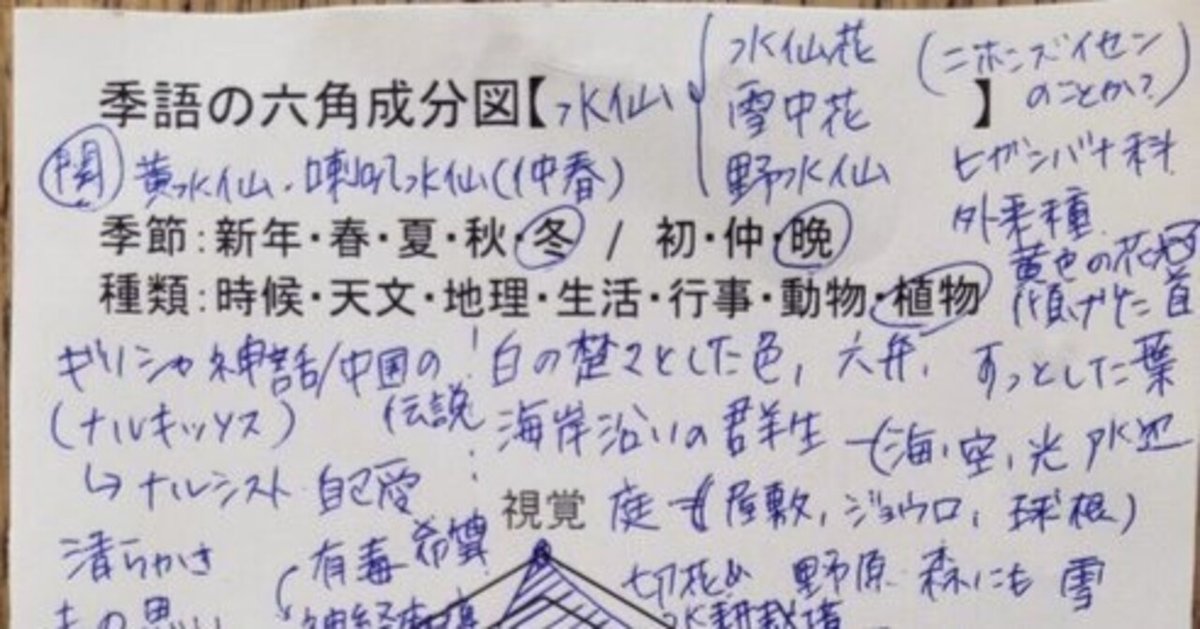 水仙花 (ニホンズイセン
季語の六角成分図【水仙 雪中花 のことか?)】
野水仙 ヒガンバナ科
関 黄水仙・喇叭水仙(仲春)
外来種
季節:新年・春・夏・秋・冬 / 初・仲・晩
黄色の花
種類:時候・天文・地理・生活・行事・動物・植物 傾げた首
ギリシャ神話/中国の伝説 白の楚々とした色, 六弁, すっとした葉
(ナルキッソス) 海岸沿いの群生 (海, 空, 光 水辺
↳ナルシスト 自己愛
視覚 庭 (屋敷, ジョウロ, 球根)
清らかさ 有毒 希望
切花 野原 森にも 雪
水耕栽培